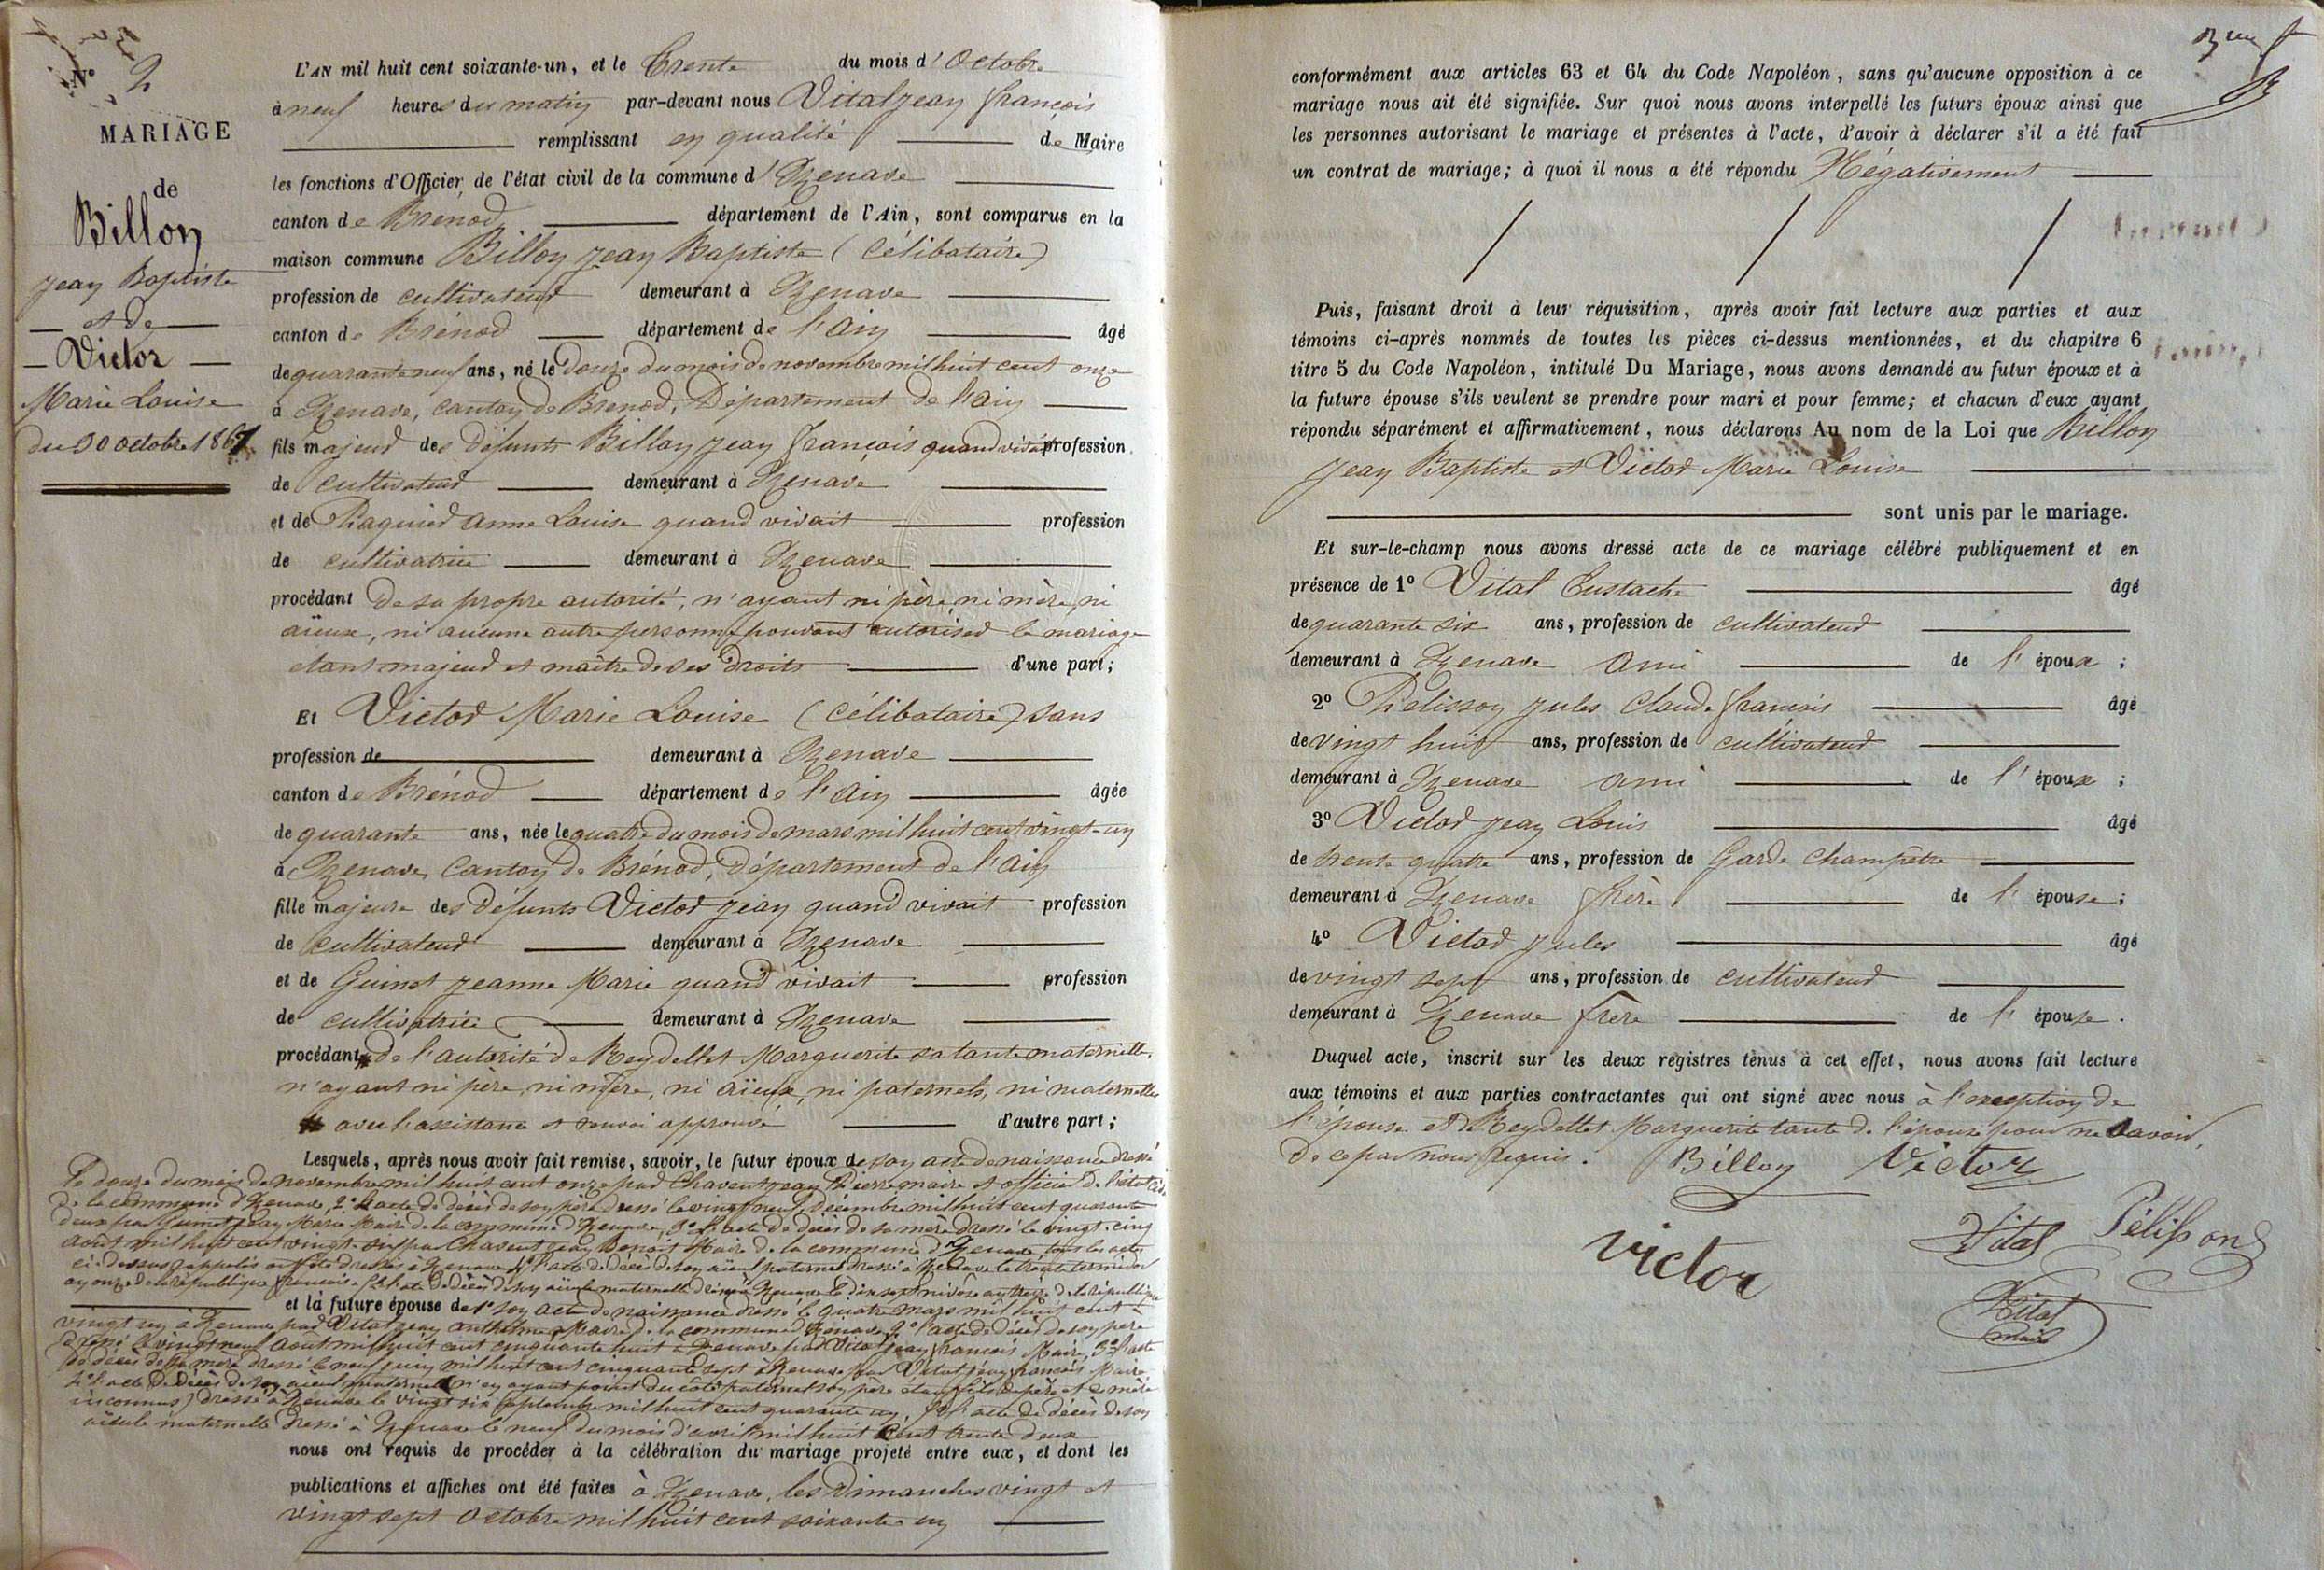 N° 2
MARIAGE
de
Billon
Jean Baptiste
et de
Victor
Marie Louise
du 30 octobre 1861
L'AN mil huit cent soixante-un, et le Trente du mois d'Octobre
à neuf heures du matin par-devant nous Vital Jean François
remplissant en qualité de Maire
les fonctions d'Officier de l'état civil de la commune d'Izenave
canton de Brénod département de l'Ain, sont comparus en la
maison commune Billon Jean Baptiste (Célibataire)
profession de cultivateur demeurant à Izenave
canton de Brénod département de l'Ain âgé
de quarante neuf ans, né le Douze du mois de novembre mil huit cent onze
à Izenave, canton de Brénod, Département de l'Ain
fils majeur des défunts Billon Jean François quand vivait profession
de cultivateur demeurant à Izenave
et de Anne Louise quand vivait profession
de cultivatrice demeurant à Izenave
procédant de sa propre autorité, n'ayant ni père, ni mère, ni
aïeux, ni aucune autre personne pouvant autoriser le mariage
étant majeur et maître de ses droits d'une part;
Et Victor Marie Louise (Célibataire) sans
profession de demeurant à Izenave
canton de Brénod département de l'Ain âgée
de quarante ans, née le quatre du mois de mars mil huit cent vingt-un
à Izenave, canton de Brénod, Département de l'Ain
fille majeure des Défunts Victor Jean quand vivait profession
de cultivateur demeurant à Izenave
et de Guinet Jeanne Marie quand vivait profession
de cultivatrice demeurant à Izenave
procédant de l'autorité de Reydellet Marguerite sa tante maternelle,
n'ayant ni père, ni mère, ni aïeux, ni paternels, ni maternelles
avec l'assistance et renvoi approuvé d'autre part;
Lesquels, après nous avoir fait remise, savoir, le futur époux de son acte de naissance dressé
le douze du mois de novembre mil huit cent onze par Chavent Jean Pierre maire et officier de l'état civil
de la commune d'Izenave, 2° l'acte de décès de son père dressé le vingt neuf décembre mil huit cent quarante
deux par Jean Marie Maire de la commune d'Izenave, 3° l'acte de décès de sa mère dressé le vingt-cinq
août mil huit cent vingt-six par Chavent Jean Benoit Maire de la commune d'Izenave, tous les actes
ci-dessus rappelés ont été dressés à Izenave 4° l'acte de décès de son aïeul paternel dressé à Izenave le trente termidor
an onze de la république française, 5° l'acte de décès de son aïeule maternelle dressé à Izenave le dix sept nivôse an treize de la république
et la future épouse de 1° son acte de naissance dressé le quatre mars mil huit cent
vingt un à Izenave par Vital Jean Anthelme Maire de la commune d'Izenave, 2° l'acte de décès de son père
dressé le vingt neuf août mil huit cent cinquante huit à Izenave par Vital Jean François Maire, 3° l'acte
de décès de sa mère dressé le neuf juin mil huit cent cinquante sept à Izenave par Vital Jean François Maire
4° l'acte de décès de son aïeul maternel (n'en ayant point du côté paternel son père étant fils de père et de mère
inconnus) dressé à Izenave le vingt six septembre mil huit cent quarante un, 5° l'acte de décès de son
aïeule maternelle dressé à Izenave le neuf du mois d'avril mil huit cent trente deux
nous ont requis de procéder à la célébration du mariage projeté entre eux, et dont les
publications et affiches ont été faites à Izenave, les Dimanches vingt et
vingt sept octobre mil huit cent soixante un
conformément aux articles 63 et 64 du Code Napoléon, sans qu'aucune opposition à ce
mariage nous ait été signifiée. Sur quoi nous avons interpellé les futurs époux ainsi que
les personnes autorisant le mariage et présentes à l'acte, d'avoir à déclarer s'il a été fait
un contrat de mariage; à quoi il nous a été répondu Négativement
Puis, faisant droit à leur réquisition, après avoir fait lecture aux parties et aux
témoins ci-après nommés de toutes les pièces ci-dessus mentionnées, et du chapitre 6
titre 5 du Code Napoléon, intitulé Du Mariage, nous avons demandé au futur époux et à
la future épouse s'ils veulent se prendre pour mari et pour femme; et chacun d'eux ayant
répondu séparément et affirmativement, nous déclarons Au nom de la Loi que Billon
Jean Baptiste et Victor Marie Louise
sont unis par le mariage.
Et sur-le-champ nous avons dressé acte de ce mariage célébré publiquement et en
présence de 1° Vital Eustache âgé
de quarante six ans, profession de cultivateur
demeurant à Izenave ami de l'époux;
2° Pelisson Jules Claude François âgé
de vingt huit ans, profession de cultivateur
demeurant à Izenave ami de l'époux;
3° Victor Jean Louis âgé
de trente quatre ans, profession de Garde Champêtre
demeurant à Izenave frère de l'épouse;
4° Victor Jules âgé
de vingt sept ans, profession de cultivateur
demeurant à Izenave frère de l'épouse.
Duquel acte, inscrit sur les deux registres tenus à cet effet, nous avons fait lecture
aux témoins et aux parties contractantes qui ont signé avec nous à l'exception de
l'épouse et de Reydellet Marguerite tante de l'épouse pour ne savoir,
de ce par nous requis. Billon Victor
Victor Vital Pélisson
Vital
maire